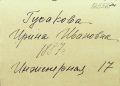 Гусакова
Ирина Ивановна
Инженерная 17